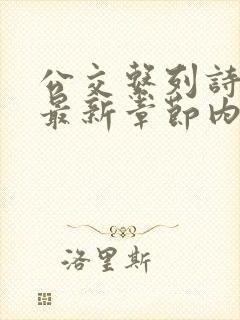 公交繫列詩
最新章節內
洛里斯